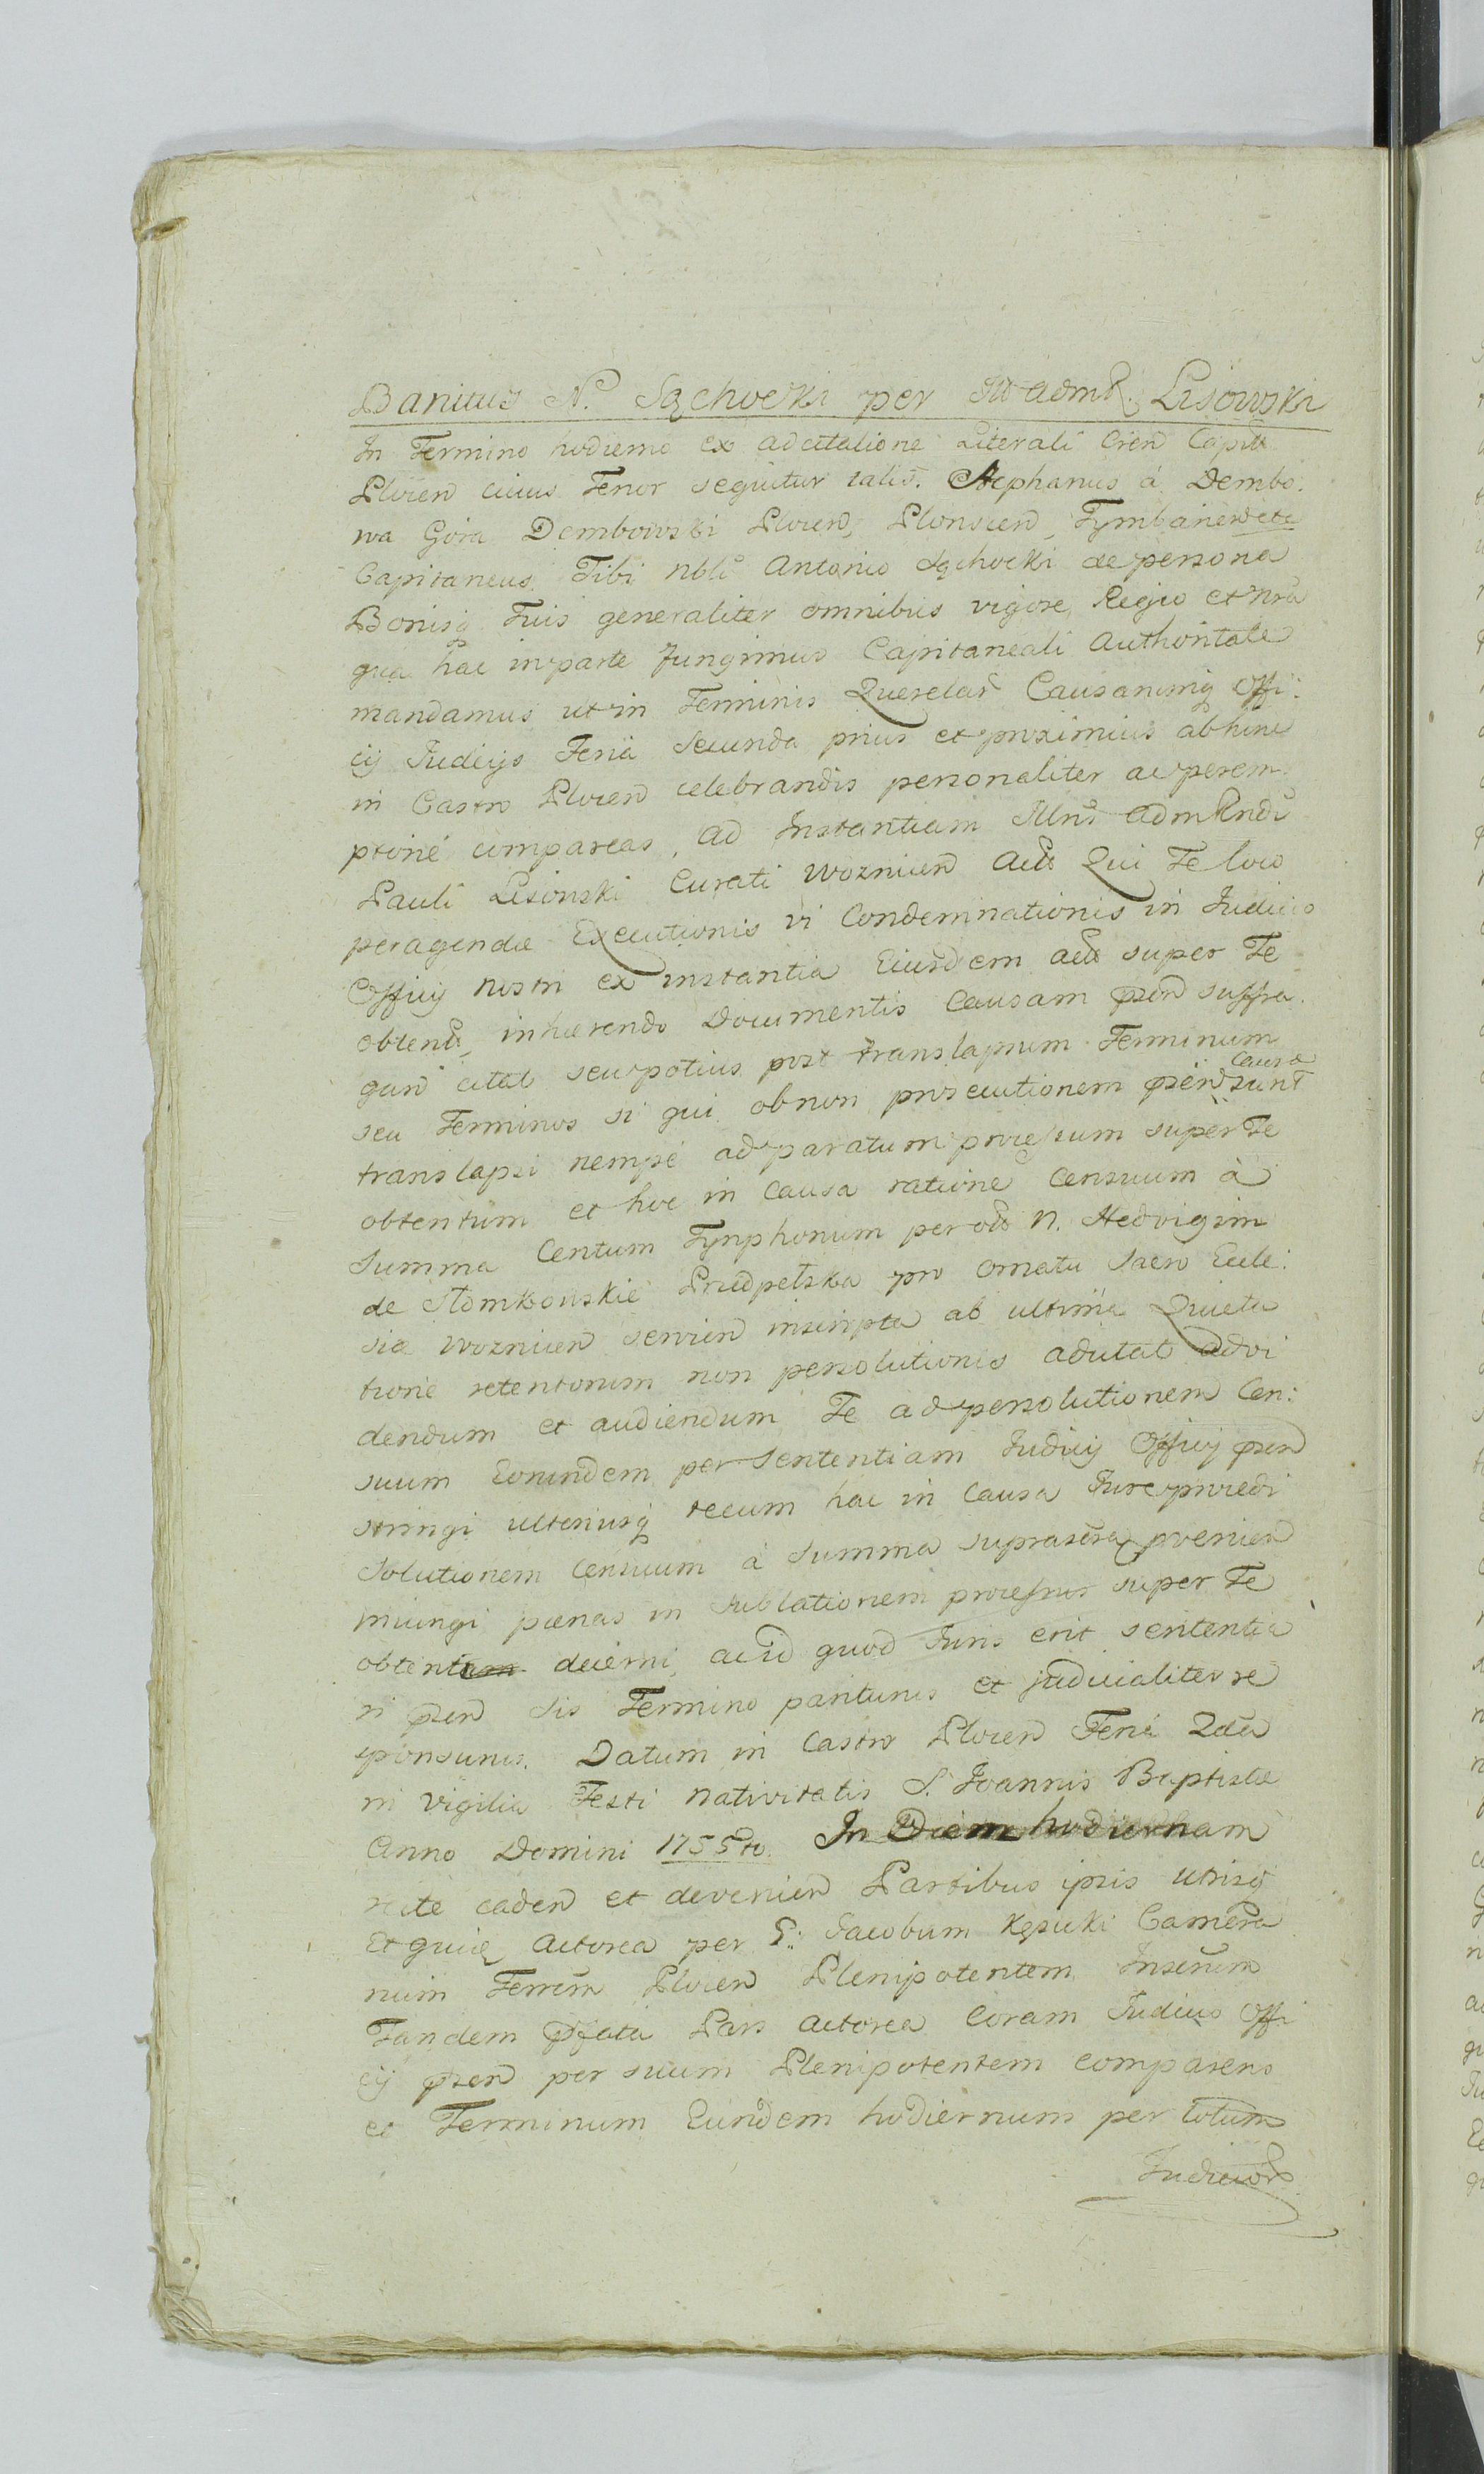 Banitus N. Sąchocki per Illr admR. Lisowski
In Termino hodierno ex adcitatione Literali Cien Capitt
Plocen cuius Tenor sequitur talis. Stephanus á Dembo:
wa Góra Dembowski Plocen, Plonscen, Tymbarien etc
Capitaneus Tibi nbli Antonio Sąchocki de persona
Bonisq Tuis generaliter omnibus vigore Regio et nra
qua hac in parte fungimur Capitaneali Authoritate
mandamus ut in Terminis Querelar Causarumq Offi:
cij Judicijs Feria Secunda prius et proximius abhinc
in Castro Plocen celebrandis personaliter ac perem
ptorié compareas, ad Instantiam Illris adm Rndi
Pauli Lisowski Curati Woznicen Actt Qui Te loco
peragendæ Executionis vi Condemnationis in Judicio
Officij nostri ex instantia Eiusdem actt super Te
obtent, inhærendo Documentis Causam pnd suffra
gan citat seu potius post translapsum Terminum
seu Terminos si qui ob non prosecutionem pnt Causæ sunt
translapsi nempé ad paratum processum super Te
obtentum et hoc in Causa ratione Censuum á
Summa Centum Tynphonum per ott N. Hedvigim
de Słomkowskie Prudpełska pro ornatu Sacro Eccle:
siæ Woznicen servien inscripta ab ultima Quieta
tione retentorum non persolutionis adcitat ad vi
dendum et audiendum Te ad persolutionem Cen:
suum Eorundem per Sententiam Judicij Officij pnt
stringi ulteriusq tecum hac in Causa Jure procedi
Solutionem Censuum á Summa suprascra provenien
iniungi pænas in Sublationem processus super Te
obtent decerni, ac id quod Juris erit sententia
ri pnt sis Termino pariturus et judicialiter re
sponsurus. Datum in Castro Plocen Feria 2da
in vigilia Festi Nativitatis S. Joannis Baptistæ
Anno Domini 1755to. In Diem hodiernam
rite caden et devenien Partibus ipsis utrisq
Et quidē Actorea per G: Jacobum Kępicki Camera
rium Terrem Plocen Plenipotentem Inserum
Tandem Pfata Pars actorea Coram Judicio Offi
cij pnt per suum Plenipotentem comparens
et Terminum Eundem hodiernum per totum
Judicior